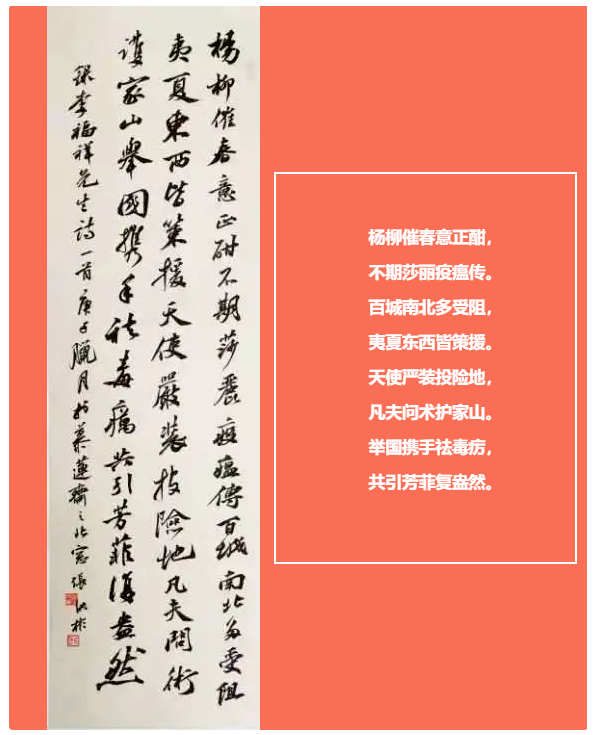 楊柳催春意正酣不期莎麗疫瘟傳百城南北多受阻
夷夏東西皆策援天使嚴裝投險地凡夫問術
護家山舉國携手祛毒癘共引芳菲復盎然
録李福祥先生詩一首庚子臘月於慕蓮齋之北窓張彬
杨柳催春意正酣，
不期莎丽疫瘟传。
百城南北多受阻，
夷夏东西皆策援。
天使严装投险地，
凡夫问术护家山。
举国携手祛毒疠，
共引芳菲复盎然。